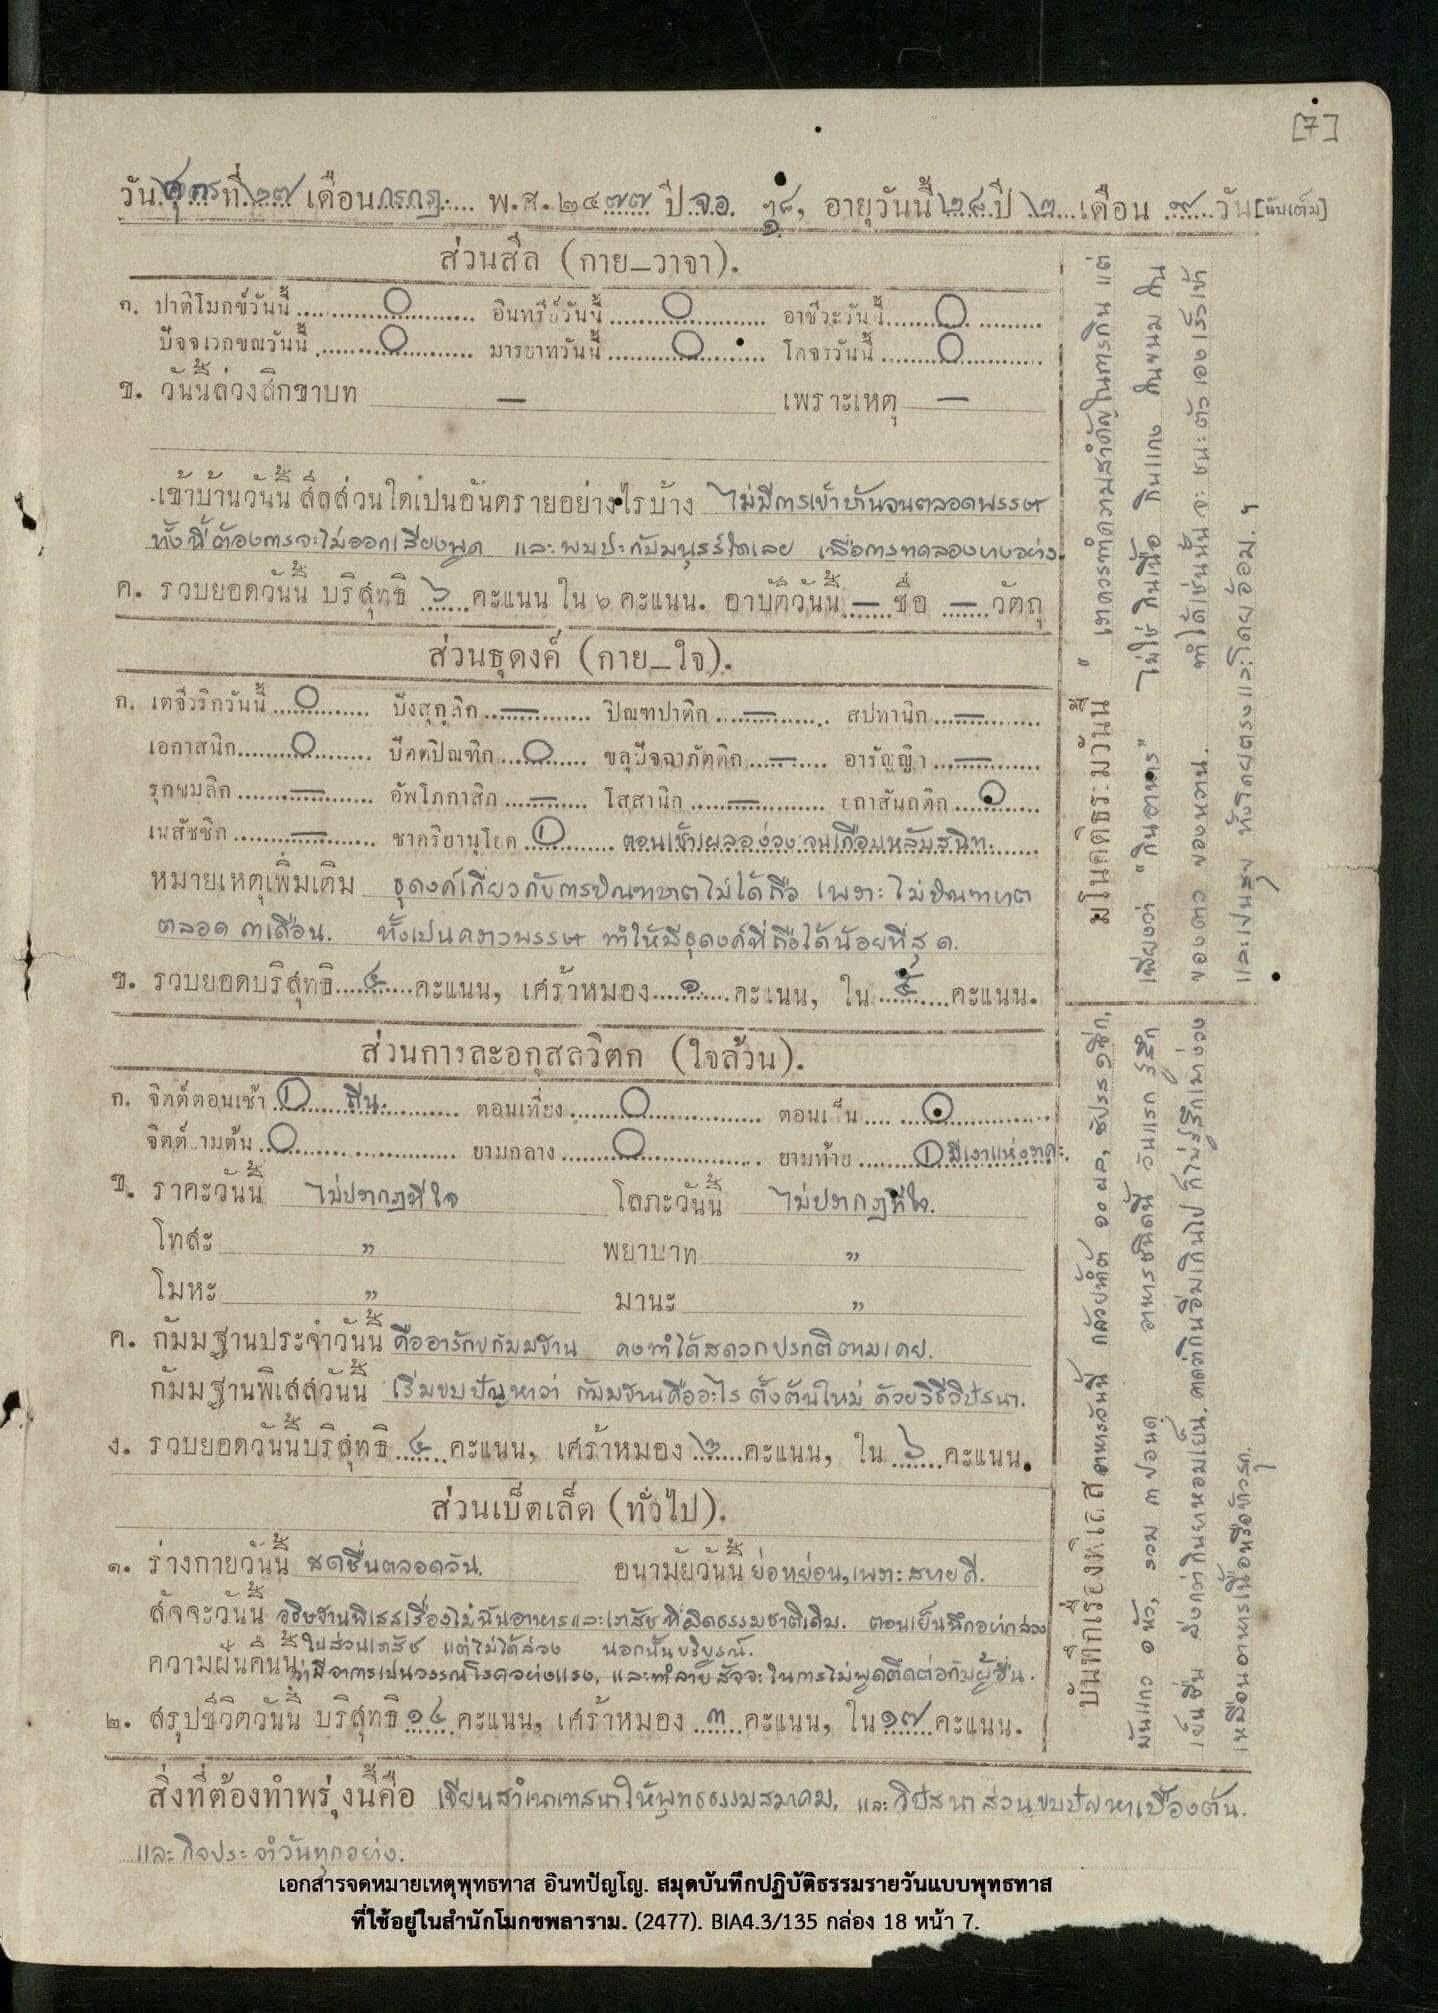 [7]
วัน ศุกร ที่ ๒๗ เดือน กรกฎ. พ.ศ. ๒๔๗๗ ปี จอ. อายุวันนี้ ๒๘ ปี ๒ เดือน ๙ วัน [นับเต็ม]
ส่วนสีล (กาย_วาจา).
ก. ปาติโมกข์วันนี้ ○ อินทรีย์วันนี้ ○ อาชีวะวันนี้ ○
ปัจจเวกขณวันนี้ ○ มารยาทวันนี้ ○ โคจรวันนี้ ○
ข. วันนี้ล่วงสิกขาบท — เพราะเหตุ —
เข้าบ้านวันนี้ สีลส่วนใดเปนอันตรายอย่างไรบ้าง ไม่มีการเข้าบ้านจนตลอดพรรษา
ทั้งนี้ต้องการจะไม่ออกเสียงพูด และพบปะกับมนุษย์ใดเลย เพื่อการทดลองบางอย่าง.
ค. รวบยอดวันนี้ บริสุทธิ ๖ คะแนน ใน ๖ คะแนน. อาบัติวันนี้ — ชื่อ — วัตถุ
ส่วนธุดงค์ (กาย_ใจ).
ก. เตจีวริกวันนี้ ○ บังสุกูลิก — ปิณฑปาติก — สปทานิก —
เอกาสนิก ○ ปัตตปิณฑิก ○ ขลุปัจฉาภัตติก — อารัญญิก —
รุกขมูลิก — อัพโภกาสิก — โสสานิก — ยถาสันถติก ○
เนสัชชิก — ชาคริยานุโยค ① ตอนเช้าเผลอง่วงจนเกือบหลับสนิท.
หมายเหตุเพิ่มเติม ธุดงค์เกี่ยวกับการบิณฑบาตไม่ได้ถือ เพราะไม่บิณฑบาต
ตลอด ๓ เดือน. ทั้งเปนคราวพรรษา ทำให้มีธุดงค์ที่ถือได้น้อยที่สุด.
ข. รวบยอดบริสุทธิ ๔ คะแนน, เศร้าหมอง ๑ คะแนน, ใน ๕ คะแนน.
ส่วนการละอกุสลวิตก (ใจล้วน).
ก. จิตต์ตอนเช้า ① ถีน. ตอนเที่ยง ○ ตอนเย็น ○
จิตต์ยามต้น ○ ยามกลาง ○ ยามท้าย ① มีเงาแห่งราคะ.
ข. ราคะวันนี้ ไม่ปรากฏที่ใจ โลภะวันนี้ ไม่ปรากฏที่ใจ.
โทสะ ,, พยาบาท ,,
โมหะ ,, มานะ ,,
ค. กัมมฐานประจำวันนี้ คืออารักขกัมมฐาน คงทำได้สดวกปรกติตามเคย.
กัมมฐานพิเสสวันนี้ เริ่มขบปัญหาว่า กัมมฐานคืออะไร ตั้งต้นใหม่ ด้วยวิธีวิปัสนา.
ง. รวบยอดวันนี้บริสุทธิ ๔ คะแนน, เศร้าหมอง ๒ คะแนน, ใน ๖ คะแนน.
ส่วนเบ็ดเล็ต (ทั่วไป).
๑. ร่างกายวันนี้ สดชื่นตลอดวัน. อนามัยวันนี้ ย่อหย่อน, เพราะสบายดี.
สัจจะวันนี้ อธิษฐานพิเสสเรื่องไม่ฉันอาหารและเภสัช ที่ผิดธรรมชาติเดิม. ตอนเย็นนึกอยากล่วง
ในส่วนเภสัช แต่ไม่ได้ล่วง นอกนั้นบริบูรณ์.
ความฝันคืนนี้ ว่ามีอาการเปนวรรณโรคอย่างแรง, และทำลายสัจจะในการไม่พูดติดต่อกับผู้อื่น.
๒. สรุปชีวิตวันนี้ บริสุทธิ ๑๔ คะแนน, เศร้าหมอง ๓ คะแนน, ใน ๑๗ คะแนน.
สิ่งที่ต้องทำพรุ่งนี้คือ เขียนสำเนาเทสนาให้พุทธธรรมสมาคม, และวิปัสนาส่วนขบปัญหาเบื้องต้น.
และกิจประจำวันทุกอย่าง.
มโนคติธรรมวันนี้ " เราควรทำความสำคัญในการกิน แต่
เพียงว่า "กินอาหาร" ไม่ใช่ กินเนื้อ กินแกง กินขนม กิน
ของคาว ของหวาน. ทำได้เช่นนั้น จะชนะตัวเองเร็วเข้า
และเปนสุข ทั้งโดยตรงและโดยอ้อม. ฯ
บันทึกเรื่องพิเสส อาหารวันนี้ กล้วยหักมุก ๑๐ ผล, สัปรส ๑ ซีก,
มันแกว ๑ หัว, รวม ๓ ปอนด์ อาหารชนิดนี้ วันแรก รู้สึก
เย็นชื่น ยิ่งกว่ากินยาหอมเย็น. แต่ว่ากินอิ่มเกินไป ก็ไม่รู้สึกเมาง่วง
เหมือนอาหารเนื้อหรือข้าวสุก.
เอกสารจดหมายเหตุพุทธทาส อินทปัญโญ. สมุดบันทึกปฏิบัติธรรมรายวันแบบพุทธทาส
ที่ใช้อยู่ในสำนักโมกขพลาราม. (2477). BIA4.3/135 กล่อง 18 หน้า 7.